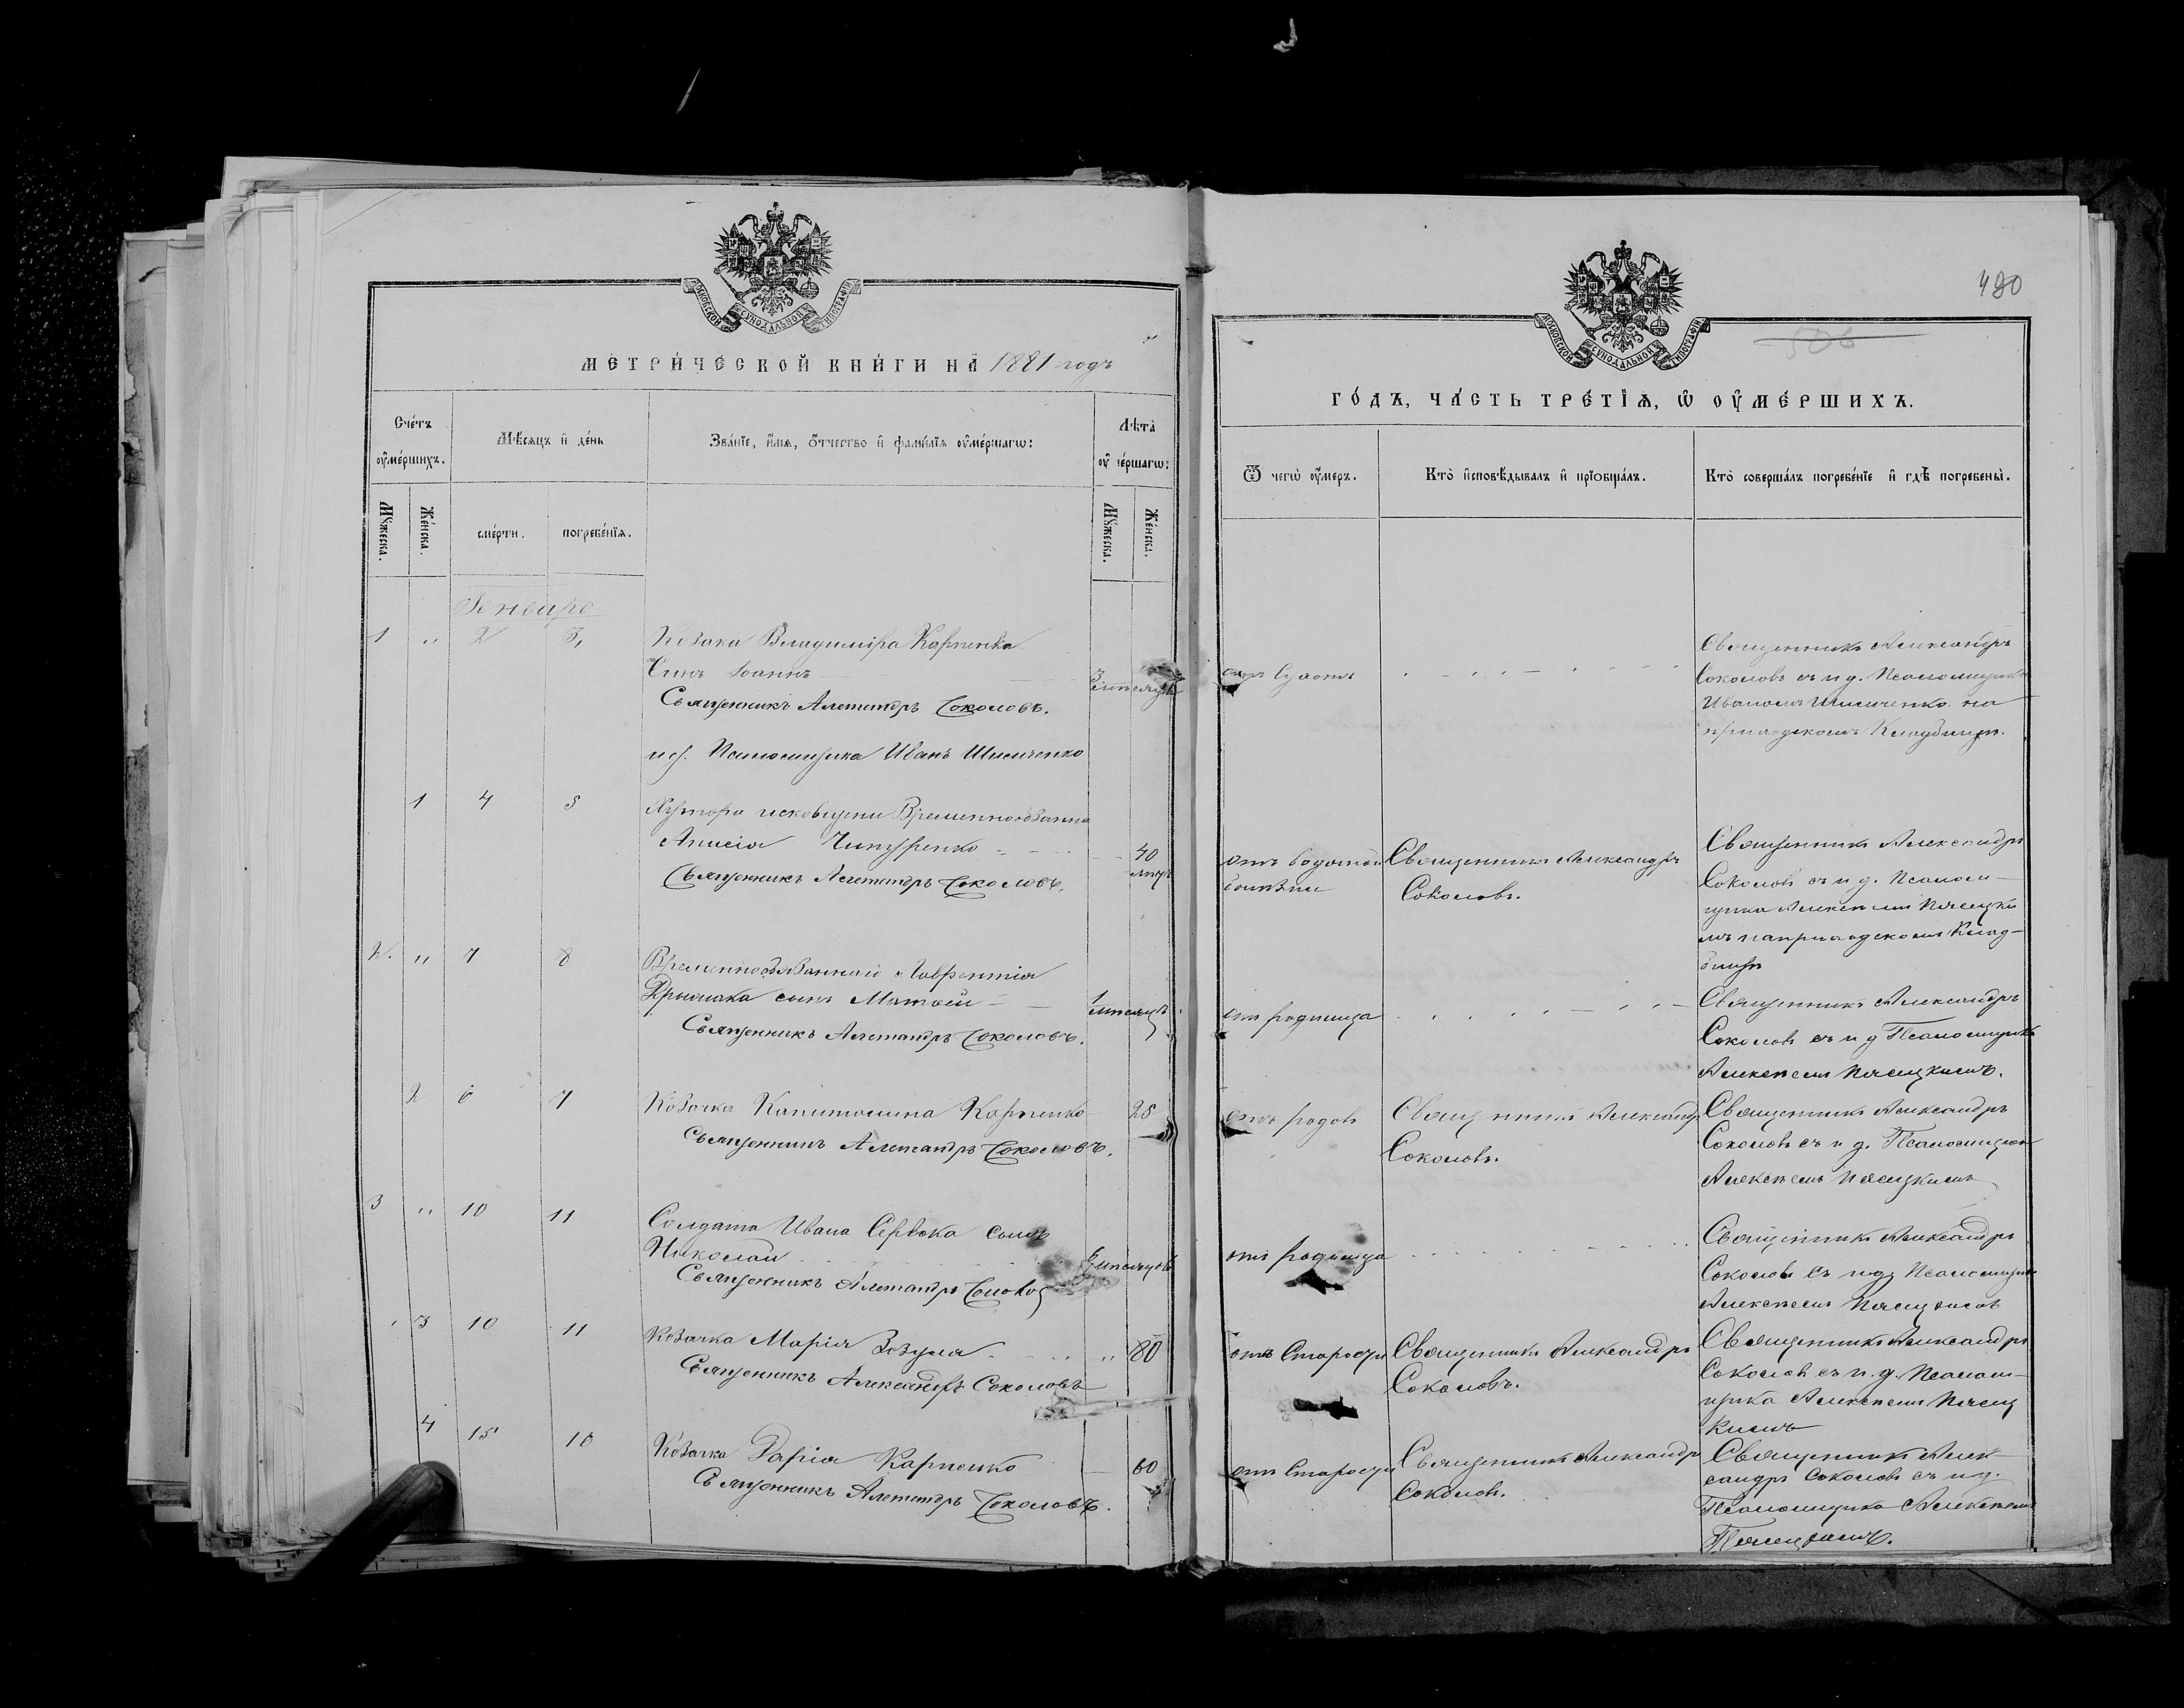 МЕТРИЧЕСКОЙ КНИГИ НА 1881 годъ
Счетъ оумершихъ.
Мѣсяцъ и день
Званіе, имя, отчество и фамилія оумершагω:
Лѣта оумершагω:
Мꙋжеска.
Женска.
смерти.
погребенія.
Мꙋжеска.
Женска.
Генваря
1 „ 2 3,
Козака Владиміра Карпенка
Сынъ Іоаннъ
3 месяца
Священникъ Александръ Соколовъ.
и д. Псаломщика Иванъ
1 4 5
Хутора Временнообязанна
Анисія
40
лѣтъ
Священникъ Александръ Соколовъ.
2. „ 7 8
Временнообязаннаго Лаврентія
сынъ
1 месяцъ
Священникъ Александръ Соколовъ.
2 6 7
Козачка Капитолина Карпенко
25
Священникъ Александръ Соколовъ.
3 „ 10 11
Солдата Ивана сынъ
Николай
6 месяцовъ
Священникъ Александръ
3 10 11
Козачка Марія Зозуля
„ 80
Священникъ Александръ Соколовъ
4 15 16
Козачка Дарія Карпенко
60
Священникъ Александръ Соколовъ.
МОСКОВСКОЙ СѴНОДАЛЬНОЙ ТИПОГРАФІИ
490
ГОДЪ, ЧАСТЬ ТРЕТІЯ, Ѡ ОУМЕРШИХЪ.
Ѿ чегω оумеръ.
Кто исповѣдывалъ и пріобщалъ.
Кто совершалъ погребеніе и гдѣ погребены.
Священникъ Александръ
Соколовъ съ и д. Псаломщика
Иваномъ на
приходскомъ Кладбищѣ.
отъ водяной
болѣзни
Священникъ Александръ
Соколовъ.
Священникъ Александръ
Соколовъ съ и д. Псалом-
щика Алексѣемъ Пясецки
мъ на приходскомъ Клад-
бищѣ
отъ родимца
Священникъ Александръ
Соколовъ съ и д Псаломщика
Алексѣемъ Пясецкимъ.
отъ родовъ
Священникъ Александръ
Соколовъ.
Священникъ Александръ
Соколовъ съ и д. Псаломщика
Алексѣемъ Пясецкимъ
отъ родимца
Священникъ Александръ
Соколовъ съ и д. Псаломщика
Алексѣемъ Пясецкимъ
отъ Старости
Священникъ Александръ
Соколовъ.
Священникъ Александръ
Соколовъ съ и. д. Псалом-
щика Алексѣемъ Пясец
кимъ
отъ Старости
Священникъ Александръ
Соколовъ.
Священникъ Алек-
сандръ Соколовъ съ и д.
Псаломщика Алексѣемъ
Пясецкимъ.
МОСКОВСКОЙ СѴНОДАЛЬНОЙ ТИПОГРАФІИ